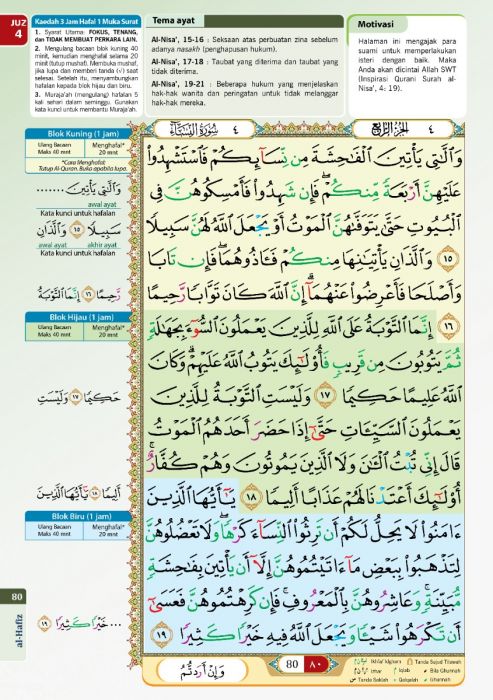 JUZ
4
Kaedah 3 Jam Hafal 1 Muka Surat
1. Syarat Utama: FOKUS, TENANG, dan TIDAK MEMBUAT PERKARA LAIN.
2. Mengulang bacaan blok kuning 40 minit, kemudian menghafal selama 20 minit (tutup mushaf). Membuka mushaf, jika lupa dan memberi tanda (√) saat selesai. Setelah itu, menyambungkan hafalan kepada blok hijau dan biru.
3. Muraja'ah (mengulang) hafalan 5 kali sehari dalam seminggu. Gunakan kata kunci untuk membantu Muraja'ah.
Tema ayat
Al-Nisa', 15-16 : Seksaan atas perbuatan zina sebelum adanya nasakh (penghapusan hukum).
Al-Nisa', 17-18 : Taubat yang diterima dan taubat yang tidak diterima.
Al-Nisa', 19-21 : Beberapa hukum yang menjelaskan hak-hak wanita dan peringatan untuk tidak melanggar hak-hak mereka.
Motivasi
Halaman ini mengajak para suami untuk memperlakukan isteri dengan baik. Maka Anda akan dicintai Allah SWT (Inspirasi Qurani Surah al-Nisa', 4: 19).
Blok Kuning (1 jam)
Ulang Bacaan
Maks 40 mnt
Menghafal*
20 mnt
*Cara Menghafal:
Tutup Al-Quran. Buka apabila lupa.
وَٱلَّٰتِي يَأْتِينَ .......
awal ayat
Kata kunci untuk hafalan
سَبِيلًا ١٥ وَٱلَّذَانِ
awal ayat akhir ayat
Kata kunci untuk hafalan
رَّحِيمًا ١٦ إِنَّمَا ٱلتَّوْبَةُ
Blok Hijau (1 jam)
Ulang Bacaan
Maks 40 mnt
Menghafal*
20 mnt
حَكِيمًا ١٧ وَلَيْسَتِ
أَلِيمًا ١٨ يَٰٓأَيُّهَا ٱلَّذِينَ
Blok Biru (1 jam)
Ulang Bacaan
Maks 40 mnt
Menghafal*
20 mnt
... خَيْرًا كَثِيرًا ١٩
80
al-Hafiz
٤ سُورَةُ النِّسَاءِ ٤ الجُزْءُ الرَّابِعُ
وَٱلَّٰتِي يَأْتِينَ ٱلْفَٰحِشَةَ مِن نِّسَآئِكُمْ فَٱسْتَشْهِدُوا۟
عَلَيْهِنَّ أَرْبَعَةً مِّنكُمْ ۖ فَإِن شَهِدُوا۟ فَأَمْسِكُوهُنَّ فِي
ٱلْبُيُوتِ حَتَّىٰ يَتَوَفَّىٰهُنَّ ٱلْمَوْتُ أَوْ يَجْعَلَ ٱللَّهُ لَهُنَّ سَبِيلًا
١٥ وَٱلَّذَانِ يَأْتِيَٰنِهَا مِنكُمْ فَـَٔاذُوهُمَا ۖ فَإِن تَابَا
وَأَصْلَحَا فَأَعْرِضُوا۟ عَنْهُمَآ ۗ إِنَّ ٱللَّهَ كَانَ تَوَّابًا رَّحِيمًا
١٦ إِنَّمَا ٱلتَّوْبَةُ عَلَى ٱللَّهِ لِلَّذِينَ يَعْمَلُونَ ٱلسُّوٓءَ بِجَهَٰلَةٍ
ثُمَّ يَتُوبُونَ مِن قَرِيبٍ فَأُو۟لَٰٓئِكَ يَتُوبُ ٱللَّهُ عَلَيْهِمْ ۗ وَكَانَ
ٱللَّهُ عَلِيمًا حَكِيمًا ١٧ وَلَيْسَتِ ٱلتَّوْبَةُ لِلَّذِينَ
يَعْمَلُونَ ٱلسَّيِّـَٔاتِ حَتَّىٰٓ إِذَا حَضَرَ أَحَدَهُمُ ٱلْمَوْتُ
قَالَ إِنِّي تُبْتُ ٱلْـَٰٔنَ وَلَا ٱلَّذِينَ يَمُوتُونَ وَهُمْ كُفَّارٌ ۚ
أُو۟لَٰٓئِكَ أَعْتَدْنَا لَهُمْ عَذَابًا أَلِيمًا ١٨ يَٰٓأَيُّهَا ٱلَّذِينَ
ءَامَنُوا۟ لَا يَحِلُّ لَكُمْ أَن تَرِثُوا۟ ٱلنِّسَآءَ كَرْهًا ۖ وَلَا تَعْضُلُوهُنَّ
لِتَذْهَبُوا۟ بِبَعْضِ مَآ ءَاتَيْتُمُوهُنَّ إِلَّآ أَن يَأْتِينَ بِفَٰحِشَةٍ
مُّبَيِّنَةٍ ۚ وَعَاشِرُوهُنَّ بِٱلْمَعْرُوفِ ۚ فَإِن كَرِهْتُمُوهُنَّ فَعَسَىٰٓ
أَن تَكْرَهُوا۟ شَيْـًٔا وَيَجْعَلَ ٱللَّهُ فِيهِ خَيْرًا كَثِيرًا ١٩
وَإِنْ أَرَدتُّمُ
80 ٨٠
Ikhfa' Idgham
Tanda Sujud Tilawah
Izhar
Iqlab
Bila Ghunnah
Tanda Saktah
Qalqalah
Ghunnah